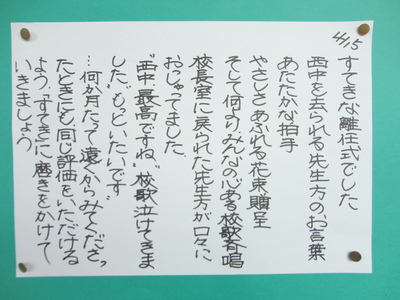 4/15
すてきな離任式でした
西中を去られる先生方のお言葉
あたたかな拍手
やさしさあふれる花束贈呈
そして何より、みんなの心ある校歌斉唱
校長室に戻られた先生方が口々に
おっしゃってました
"西中、最高ですね""校歌泣けてきま
した""もっといたいです"
…何か月たって、遠くからみてくださっ
たときにも、同じ評価をいただける
よう、「すてきに」磨きをかけて
いきましょう